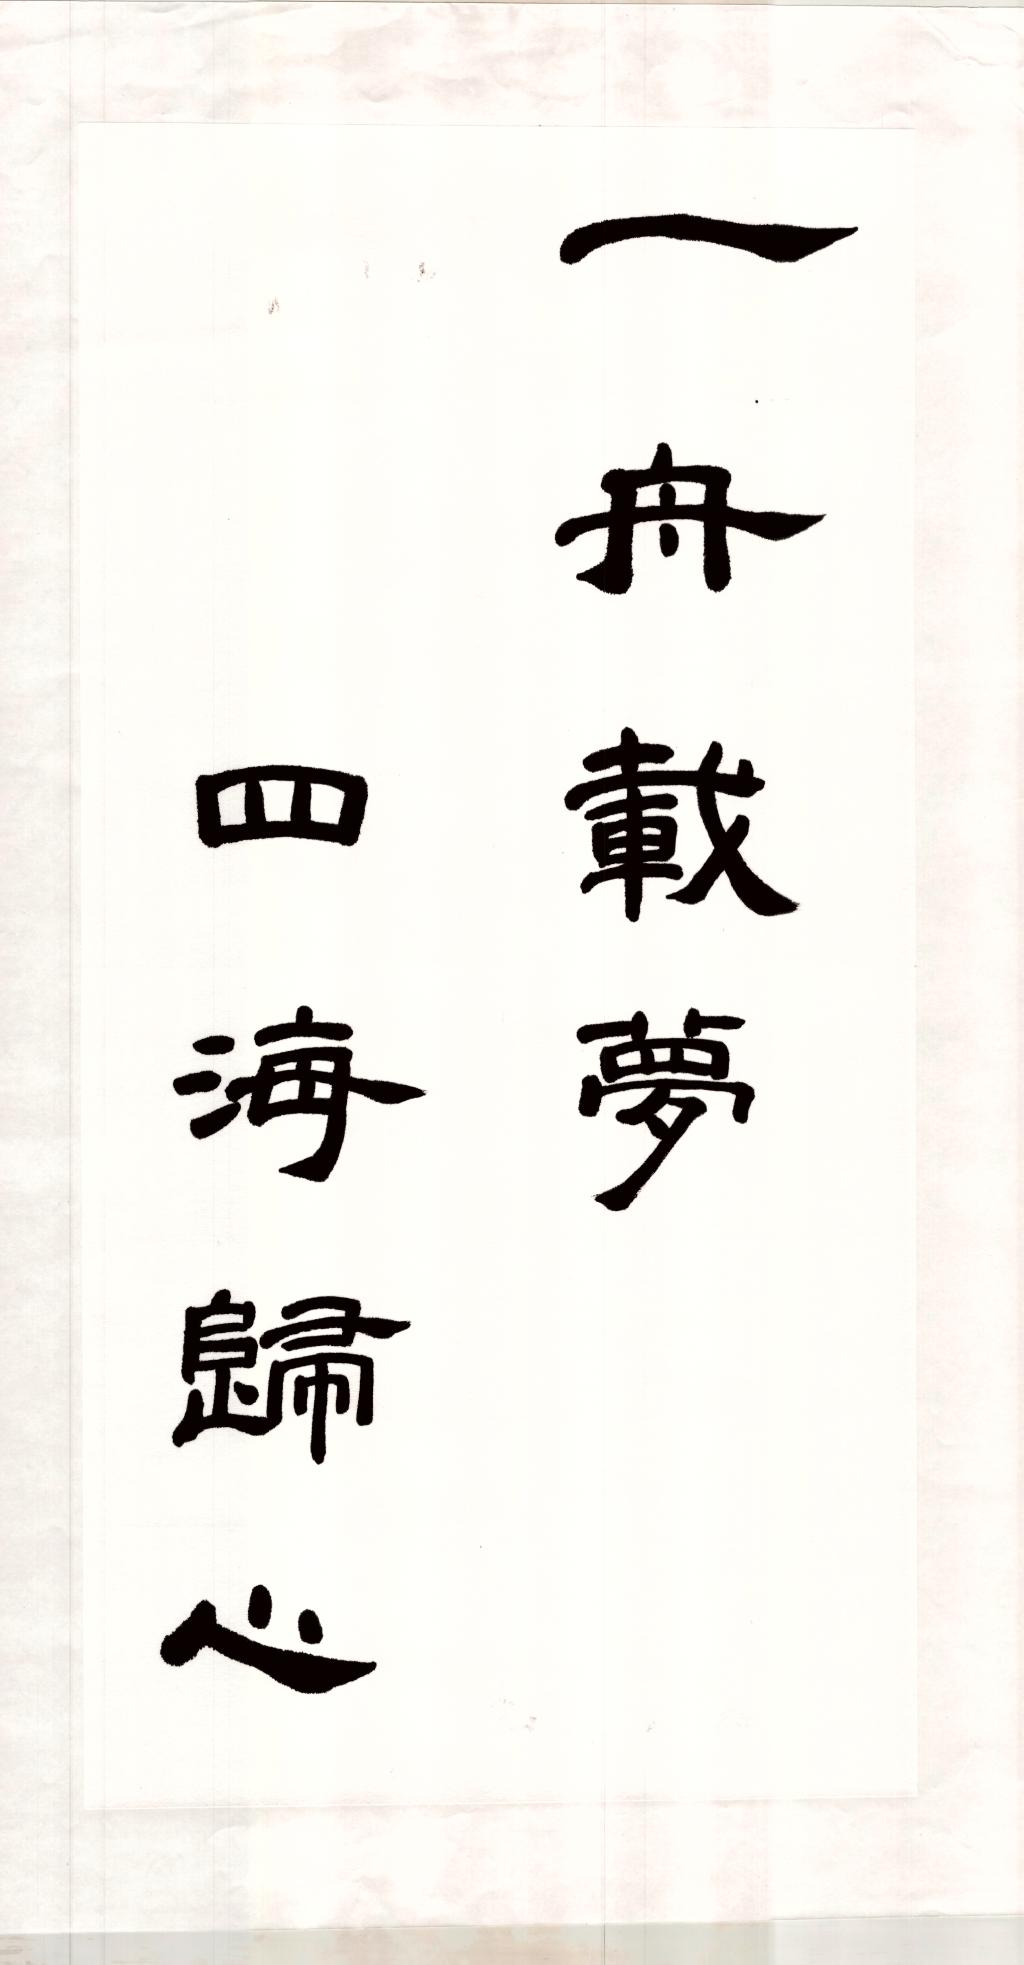 一舟載夢
四海歸心